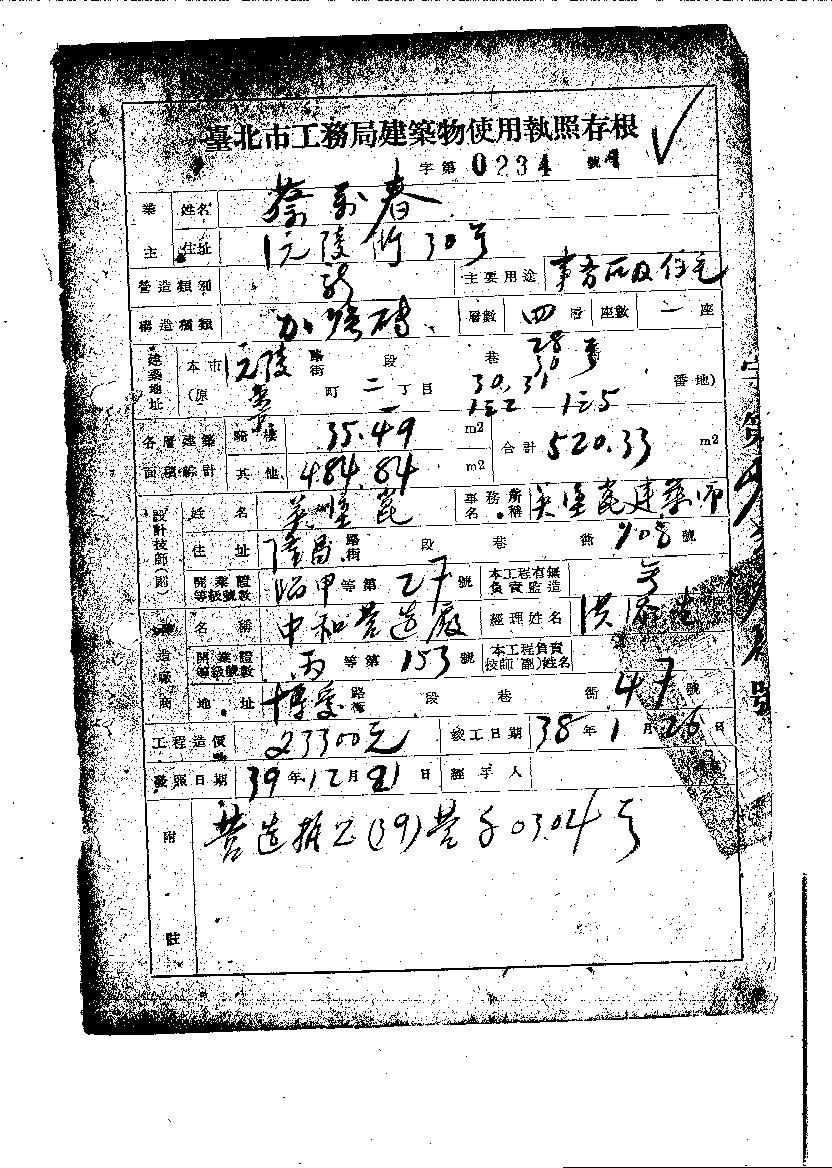 臺北市工務局建築物使用執照存根
字第 0234 號
業主 姓名 蔡萬春
住址 沅陵街30号
營造類別 新 主要用途 事务所及住宅
構造種類 加强磚 層數 四層 座數 一座
建築地址 本市 沅陵 路街 段 巷 28 30 号
(原 町 二 丁目 30, 31 番地)
1之2 1之5
各層建築面積總計 騎樓 35.49 m2 合計 520.33 m2
其他 484.84 m2
設計技師(副) 姓名 事務所名稱 建築师
住址 隆昌 路街 段 巷 衖 108 號
開業證等級號數 甲等第 27 號 本工程有無負責監造
營造廠商 名稱 中和营造厰 經理姓名 洪
開業證等級號數 丙等第 153 號 本工程負責技師(副)姓名
地址 博爱 路街 段 巷 衖 47 號
工程造價 23300元 竣工日期 38年1月26日
發照日期 39年12月21日 經手人
附註 营造执照(39)营字0304号